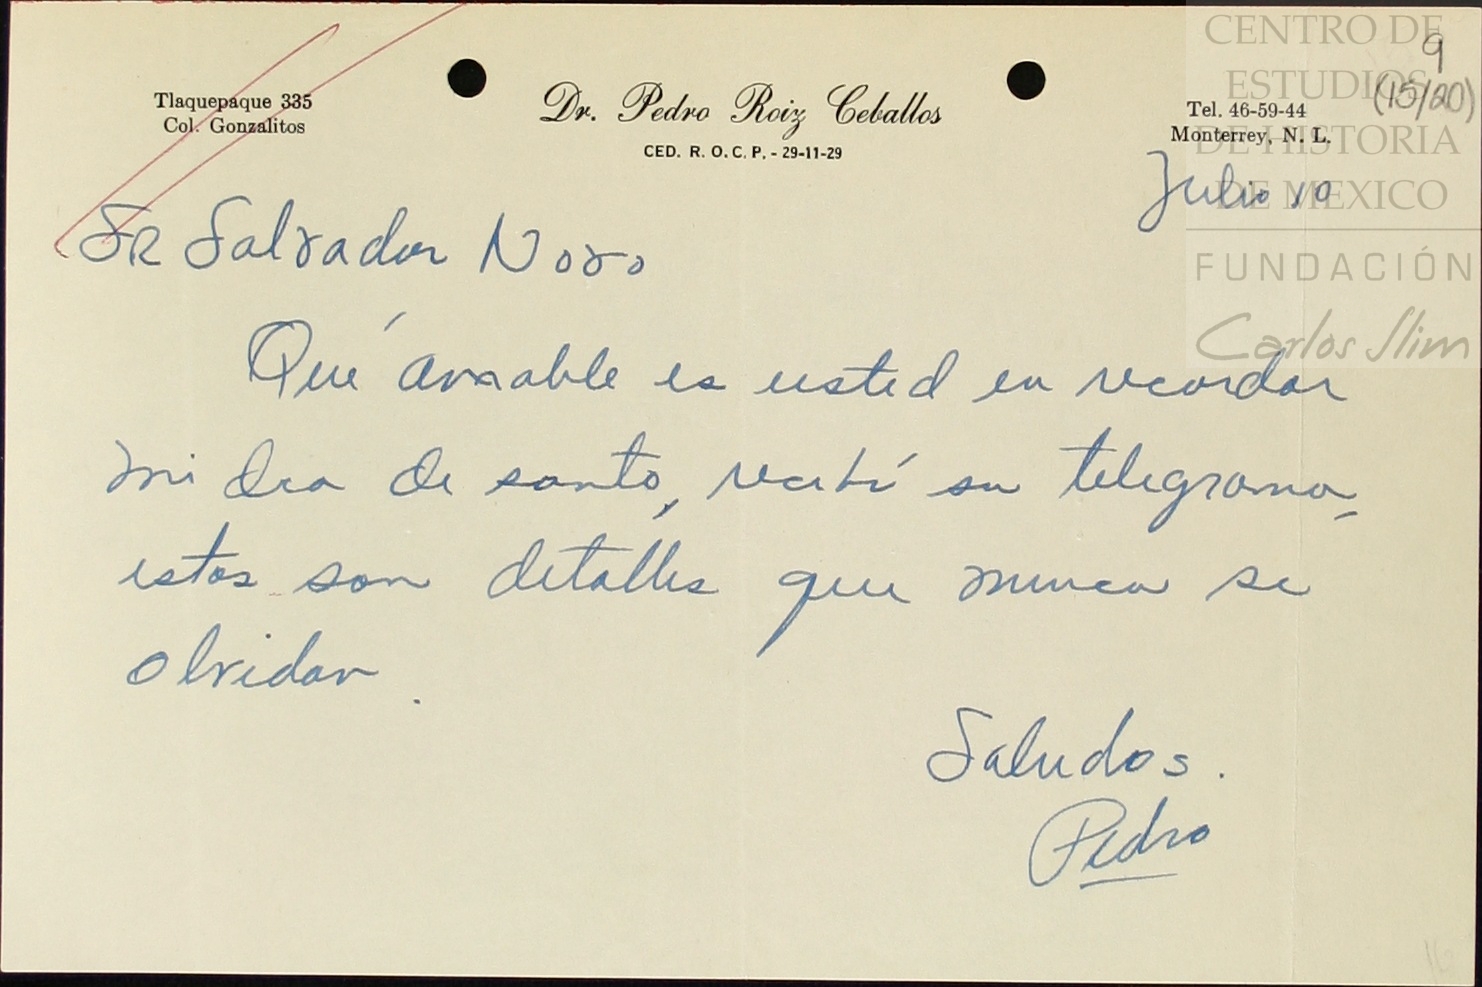 Tlaquepaque 335
Col. Gonzalitos
Dr. Pedro Roiz Ceballos
CED. R. O. C. P. - 29-11-29
Tel. 46-59-44
Monterrey, N. L.
9
(15/20)
CENTRO DE
ESTUDIOS
DE HISTORIA
DE MEXICO
FUNDACIÓN
Carlos Slim
Julio 10
SR Salvador Novo
Qué amable es usted en recordar
mi dia de santo, recibí su telegrama,
estos son detalles que nunca se
olvidan.
Saludos.
Pedro
16